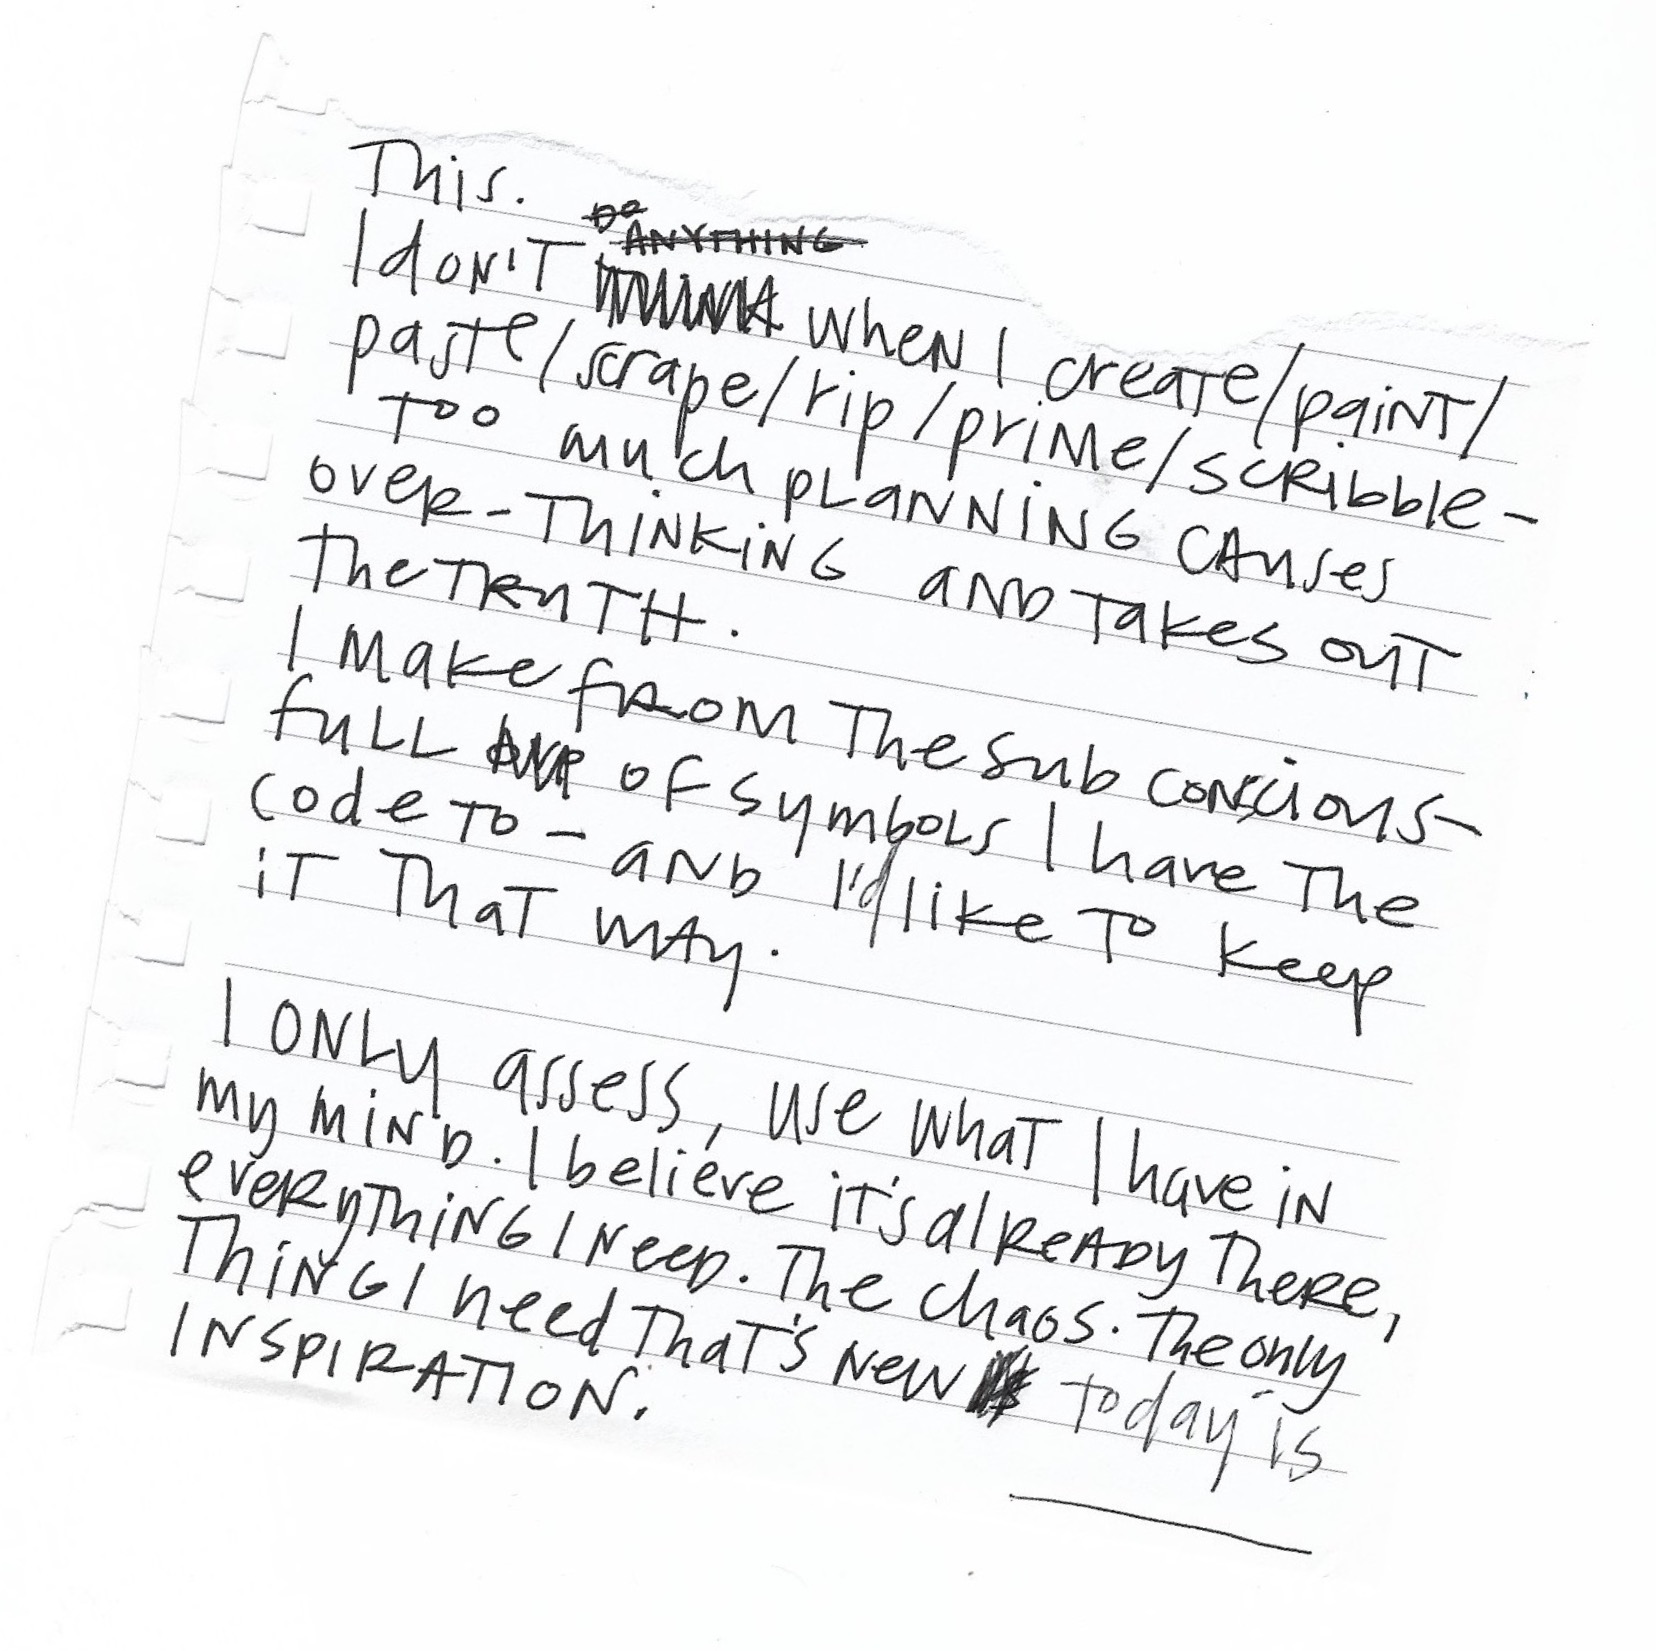 This.
DO ANYTHING
I dON'T when I create/paiNT/
paste/scrape/rip/priMe/scRibble –
Too much pLaNNiNG CAuses
oveR-ThiNKiNG aND Takes ouT
The TRuTH.
I Make fRoM The sub coNscious –
fuLL oF symboLs I have The
code To – aNd I'd like To keep
iT ThaT wAy.
I ONLy assess, use whaT I have iN
my MiND. I believe iT's alReADy TheRe,
eveRyThiNG I NeeD. The chaos. The only
ThiNG I need ThaT's New Today is
INSPIRATION.